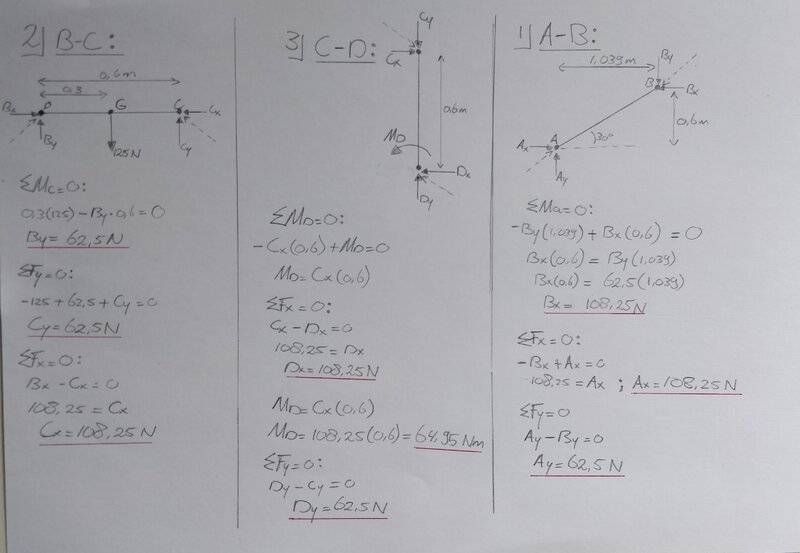 2) B-C:
0,6m
0,3
Bx
B
G
C
Cx
By
125N
Cy
ΣMc=0:
0,3(125) - By·0,6 = 0
By = 62,5N
ΣFy=0:
-125 + 62,5 + Cy = 0
Cy = 62,5N
ΣFx=0:
Bx - Cx = 0
108,25 = Cx
Cx = 108,25N
3) C-D:
Cy
Cx
0,6m
MD
Dx
Dy
ΣMD=0:
-Cx(0,6) + MD = 0
MD = Cx(0,6)
ΣFx=0:
Cx - Dx = 0
108,25 = Dx
Dx = 108,25N
MD = Cx(0,6)
MD = 108,25(0,6) = 64,95 Nm
ΣFy=0:
Dy - Cy = 0
Dy = 62,5N
1) A-B:
1,039m
By
B
Bx
0,6m
Ax
A
30°
Ay
ΣMa=0:
-By(1,039) + Bx(0,6) = 0
Bx(0,6) = By(1,039)
Bx(0,6) = 62,5(1,039)
Bx = 108,25N
ΣFx=0:
-Bx + Ax = 0
108,25 = Ax ; Ax = 108,25N
ΣFy=0
Ay - By = 0
Ay = 62,5N